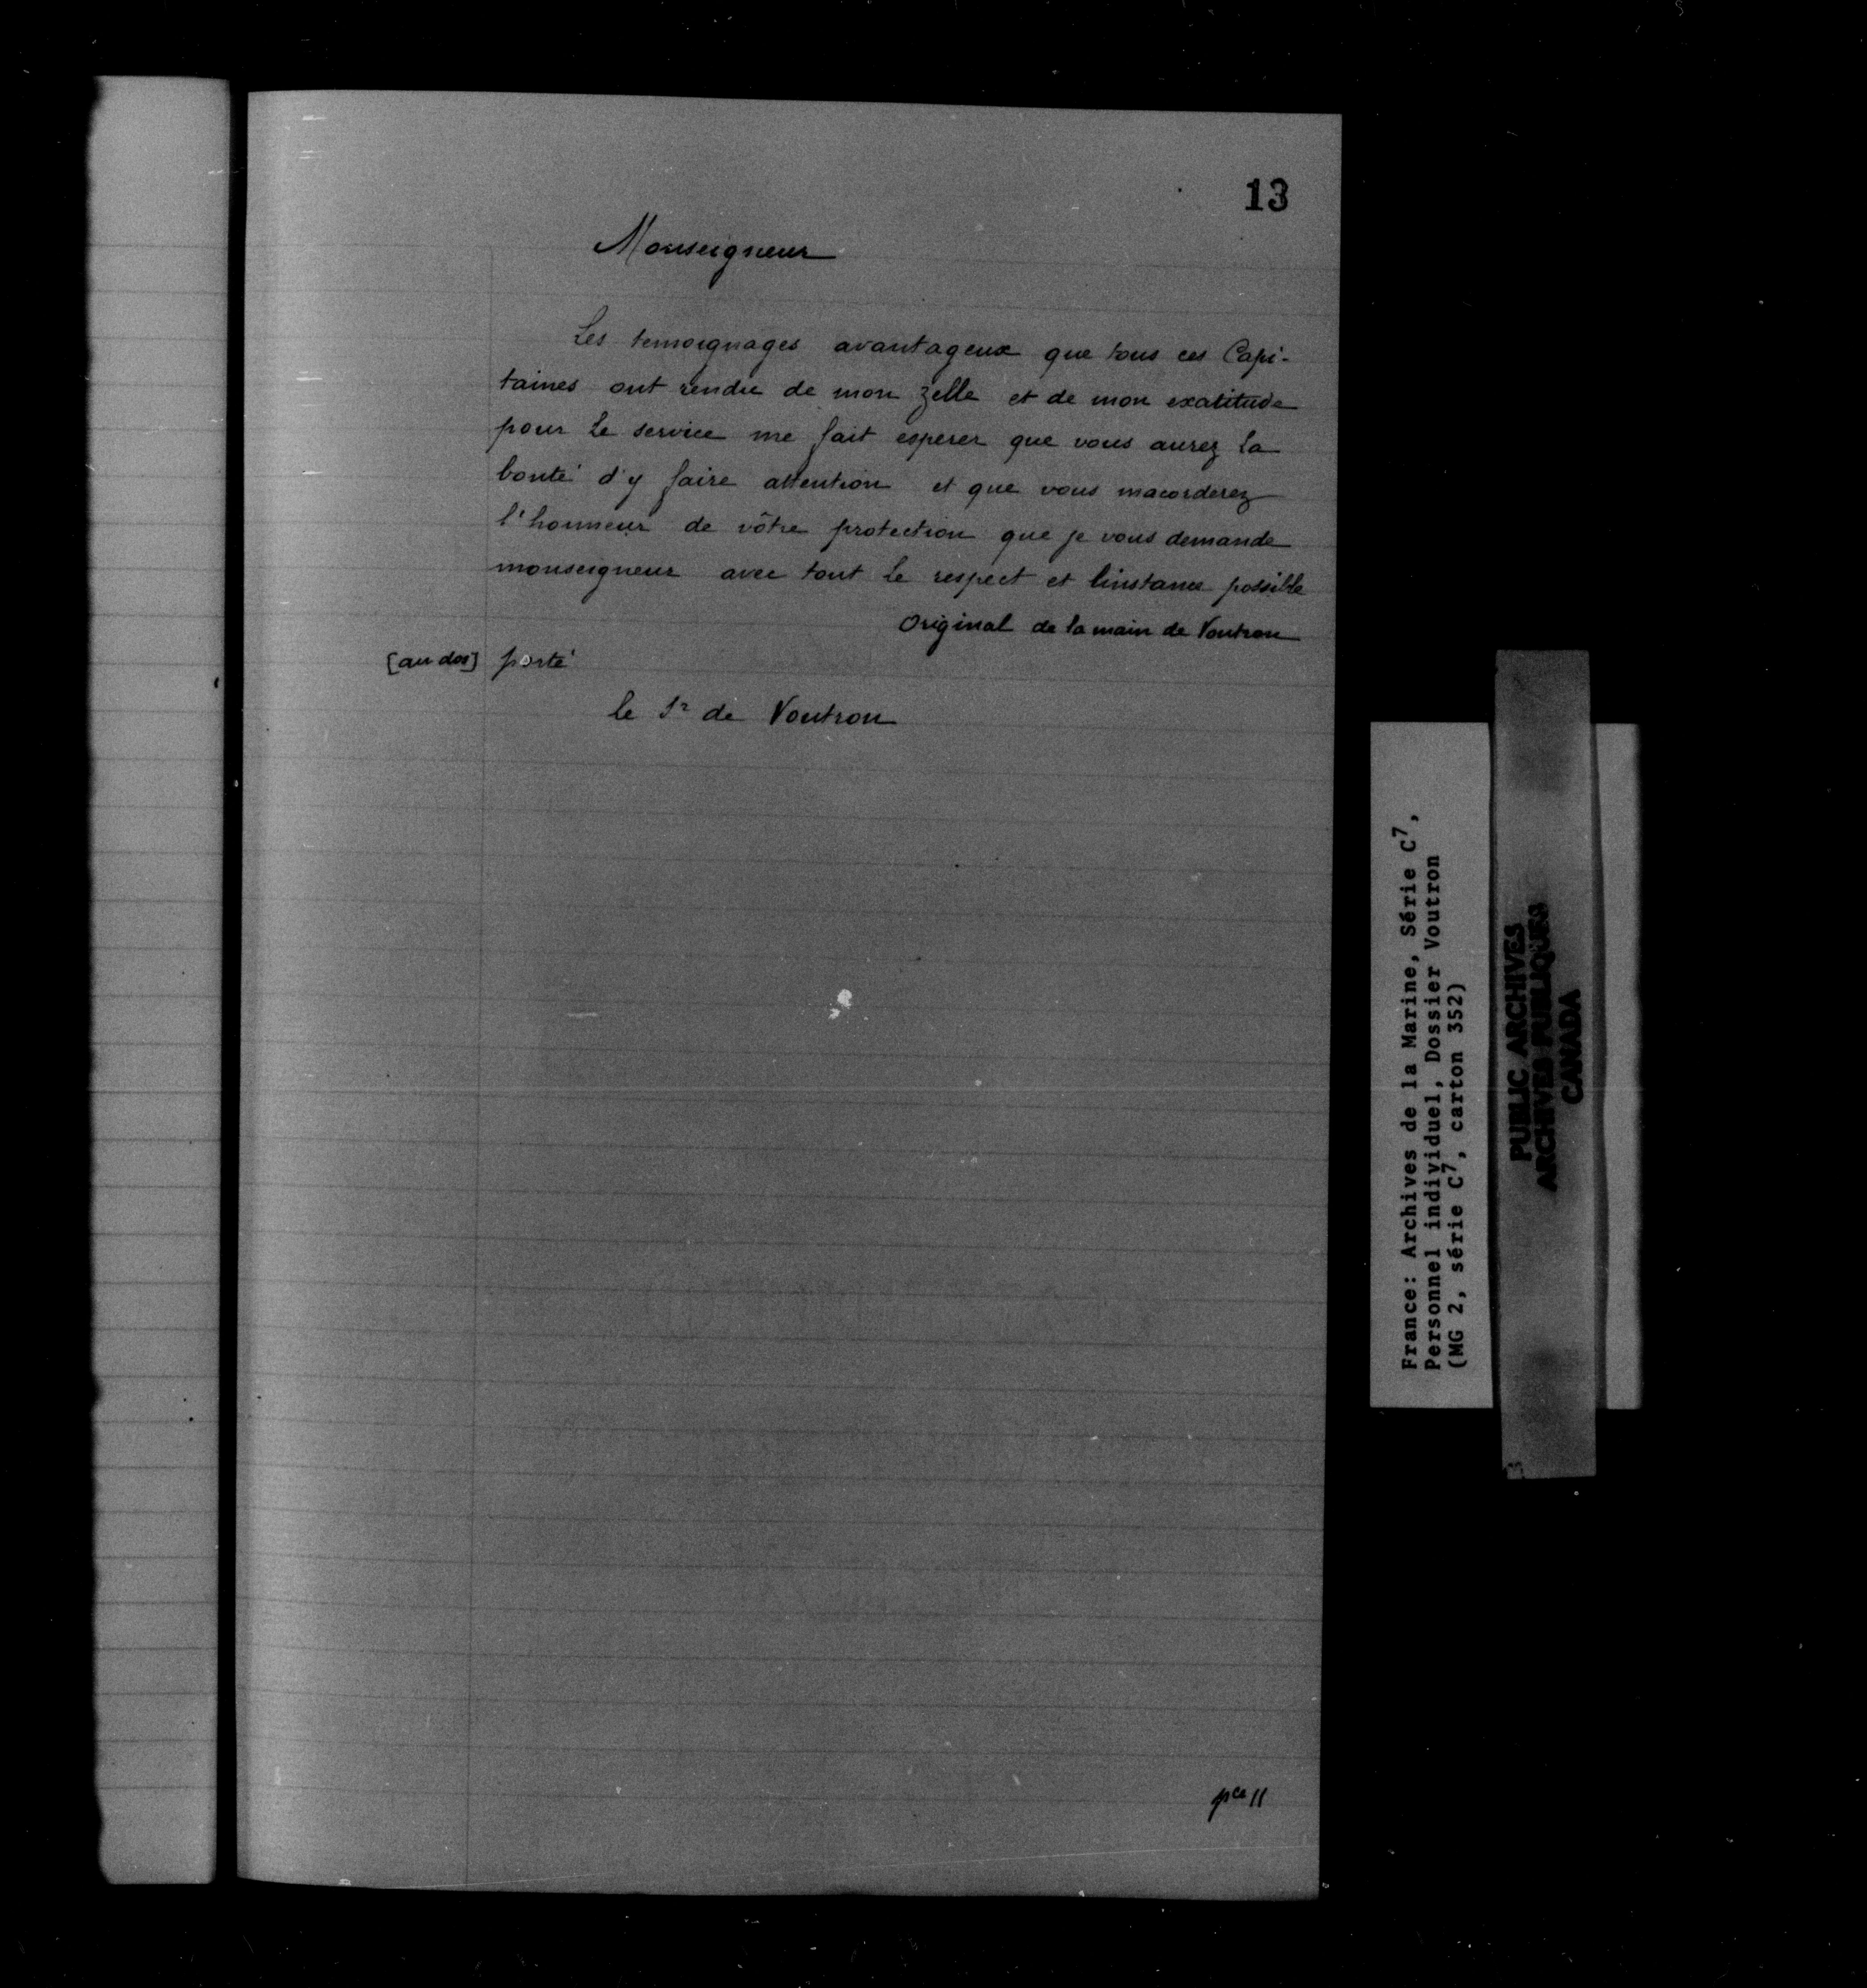 13
Monseigneur
Les temoignages avantageux que tous ces Capi-
taines ont rendu de mon zelle et de mon exatitude
pour le service me fait esperer que vous aurez la
bonté d'y faire attention et que vous macorderez
l'honneur de vôtre protection que je vous demande
monseigneur avec tout le respect et linstance possible
Original de la main de Voutron
[au dos] porté
le Sr de Voutron
pce 11
France: Archives de la Marine, Série C7,
Personnel individuel, Dossier Voutron
(MG 2, série C7, carton 352)
PUBLIC ARCHIVES
ARCHIVES PUBLIQUES
CANADA